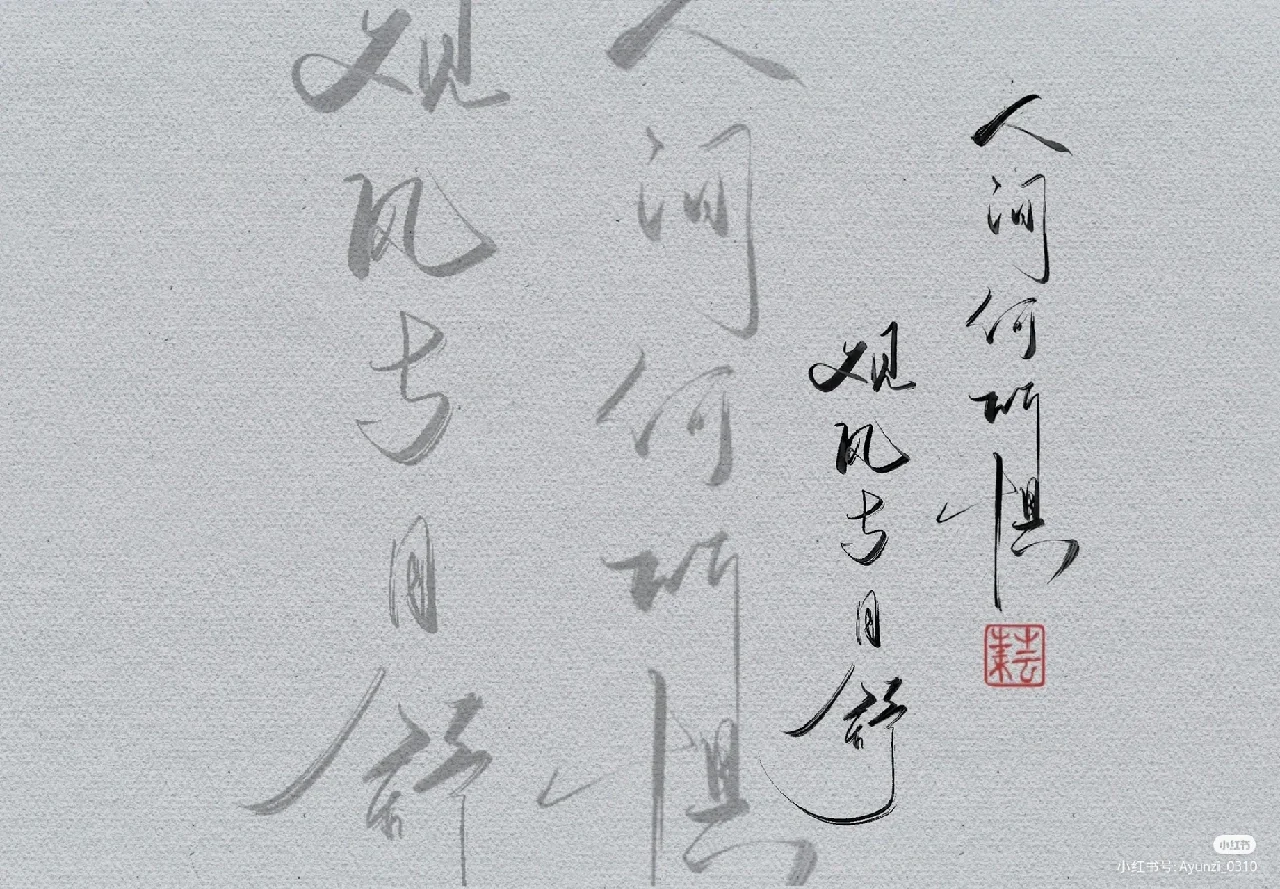 人间何所惧
观风与月舒
人间何所惧
观风与月舒
耘
小红书
小红书号: Ayunzi_0310